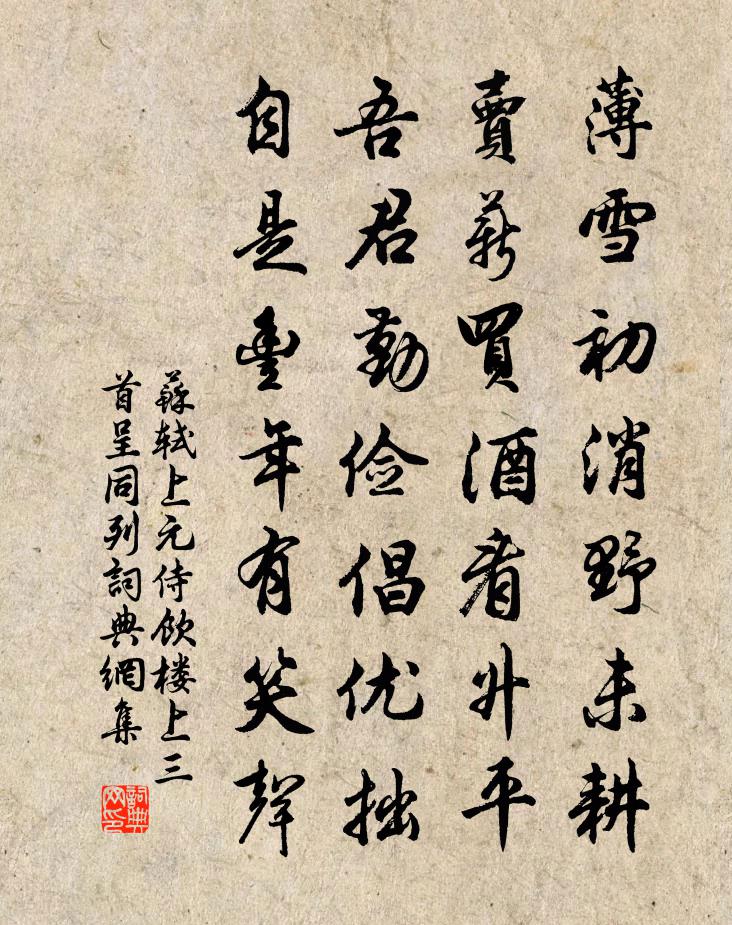 薄雪初消野未耕
賣薪買酒看升平
吾君勤俭倡优拙
自是豊年有笑聲
蘇軾上元侍飲楼上三
首呈同列詞典網集
詞典
网印